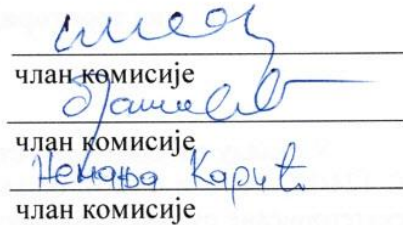 члан комисије
члан комисије
Немања Карић
члан комисије